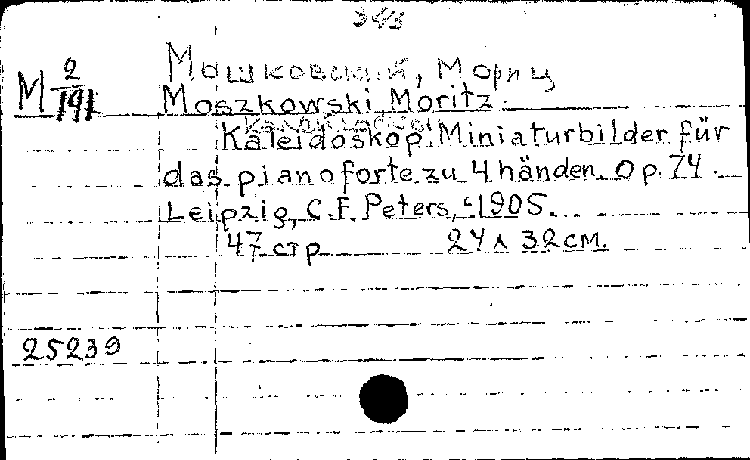 343
Мошковский, Мориц
М 2/191
Moszkowski Moritz.
Kaleidoskop: Miniaturbilder für
das pianoforte zu 4 händen. Op. 74.
Leipzig, C. F. Peters, 1905.
47 стр 24 x 32 см.
25239